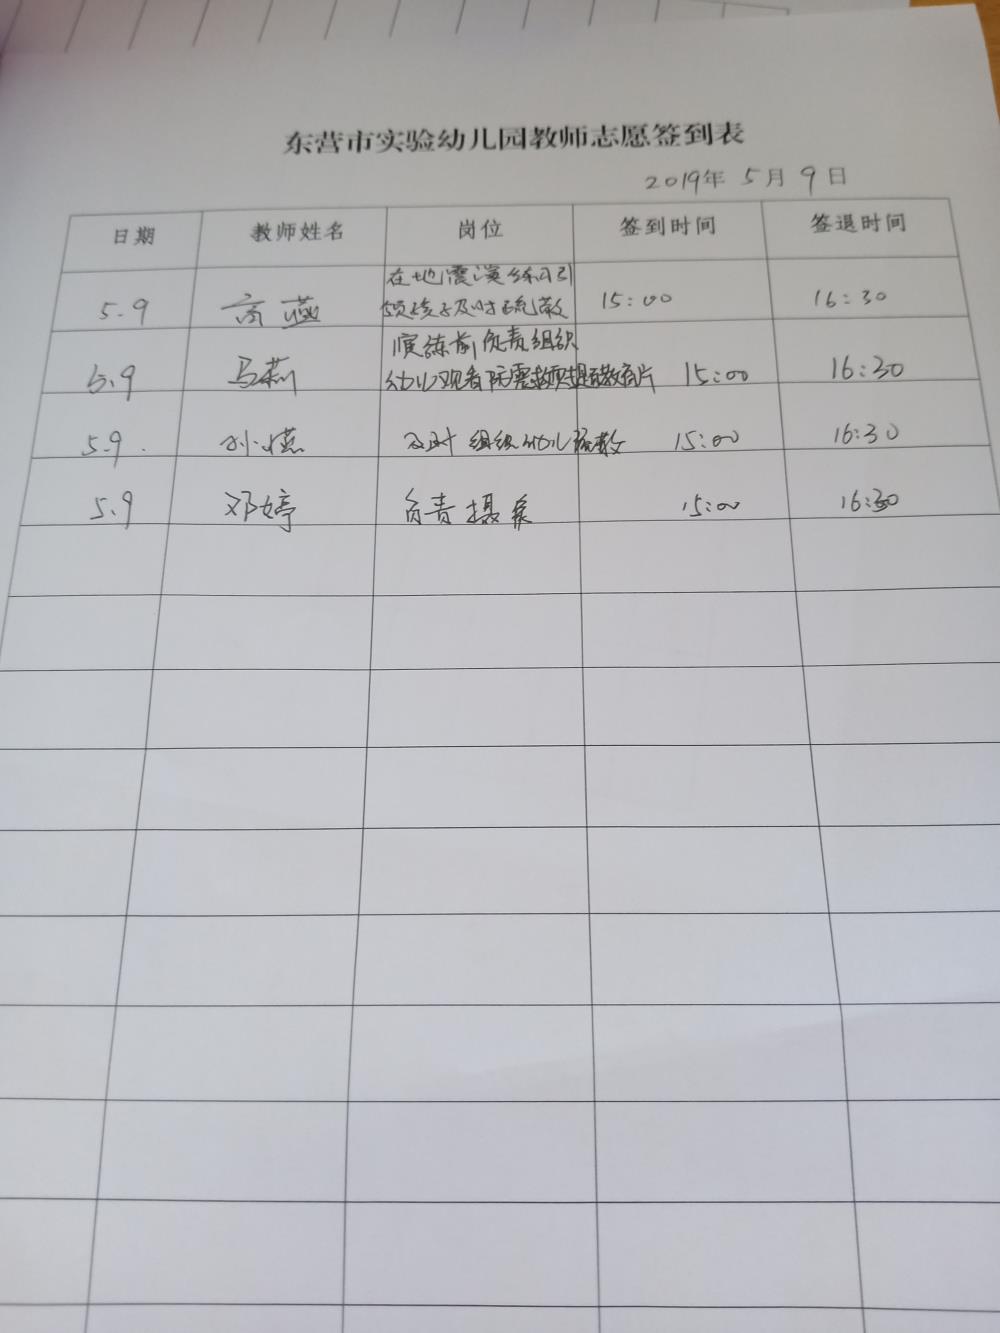 东营市实验幼儿园教师志愿签到表
2019年 5月 9日
日期 教师姓名 岗位 签到时间 签退时间
在地震演练习引
5.9 高燕 领孩子及时疏散 15:00 16:30
演练前负责组织
5.9 马莉 幼儿观看防震 教育片 15:00 16:30
5.9. 孙燕 及时组织幼儿疏散 15:00 16:30
5.9 邓婷 负责摄像 15:00 16:30